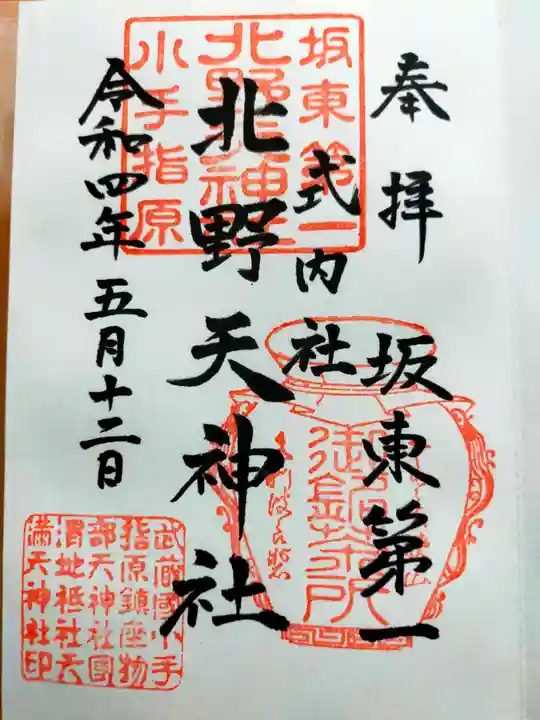 奉拝
坂東第一
式内社
北野天神社
令和四年五月十二日
坂東第一
北野神社
小手指原
武蔵國小手
指原鎮座物
部天神社國
渭地祇社天
満天神社印